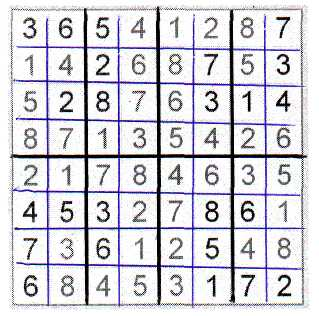 3 6 5 4 1 2 8 7
1 4 2 6 8 7 5 3
5 2 8 7 6 3 1 4
8 7 1 3 5 4 2 6
2 1 7 8 4 6 3 5
4 5 3 2 7 8 6 1
7 3 6 1 2 5 4 8
6 8 4 5 3 1 7 2